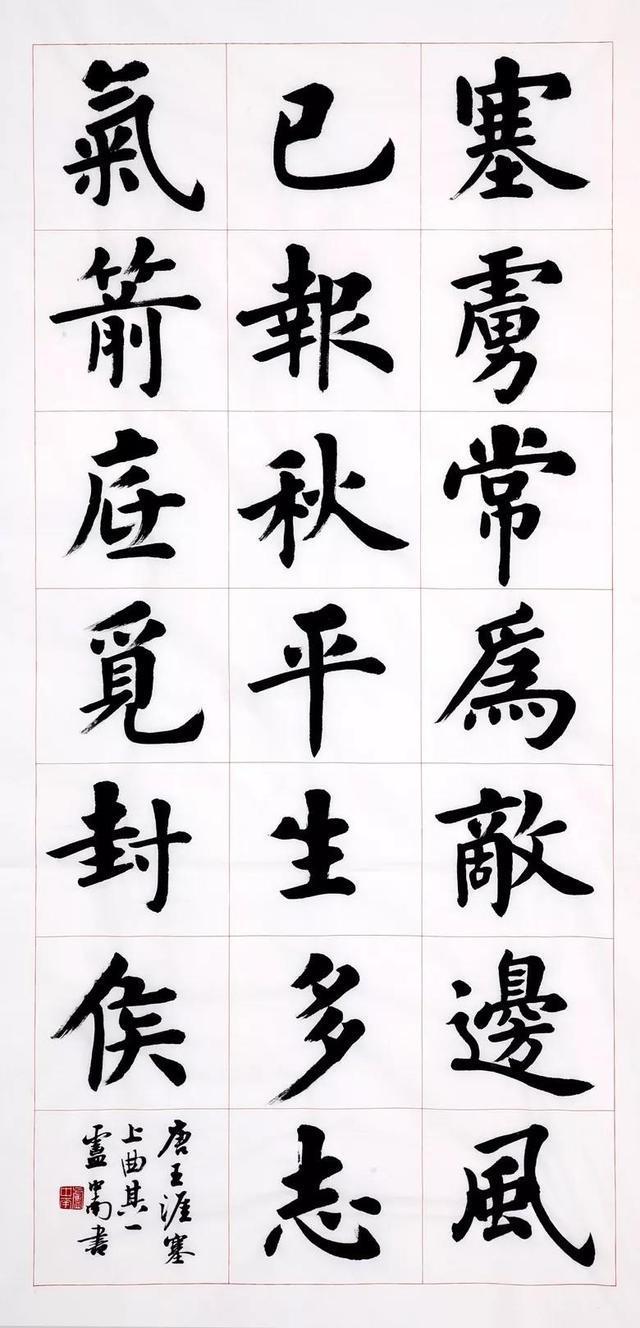 塞虜常爲敵邊風
已報秋平生多志
氣箭底覓封侯
唐王涯塞
上曲其一
盧中南書